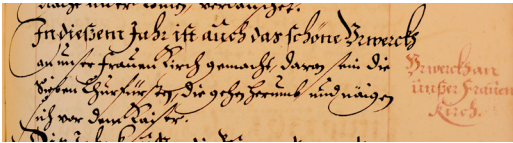 In dieszem Jahr ist auch das schöne Vrwerck
an unser frauen Kirch gemacht, daran sein die
Sieben Churfürsten, die gehn herumb und näigen
sich vor dem Kaiser.
Vrwerck an
unßer Frauen
Kirch.